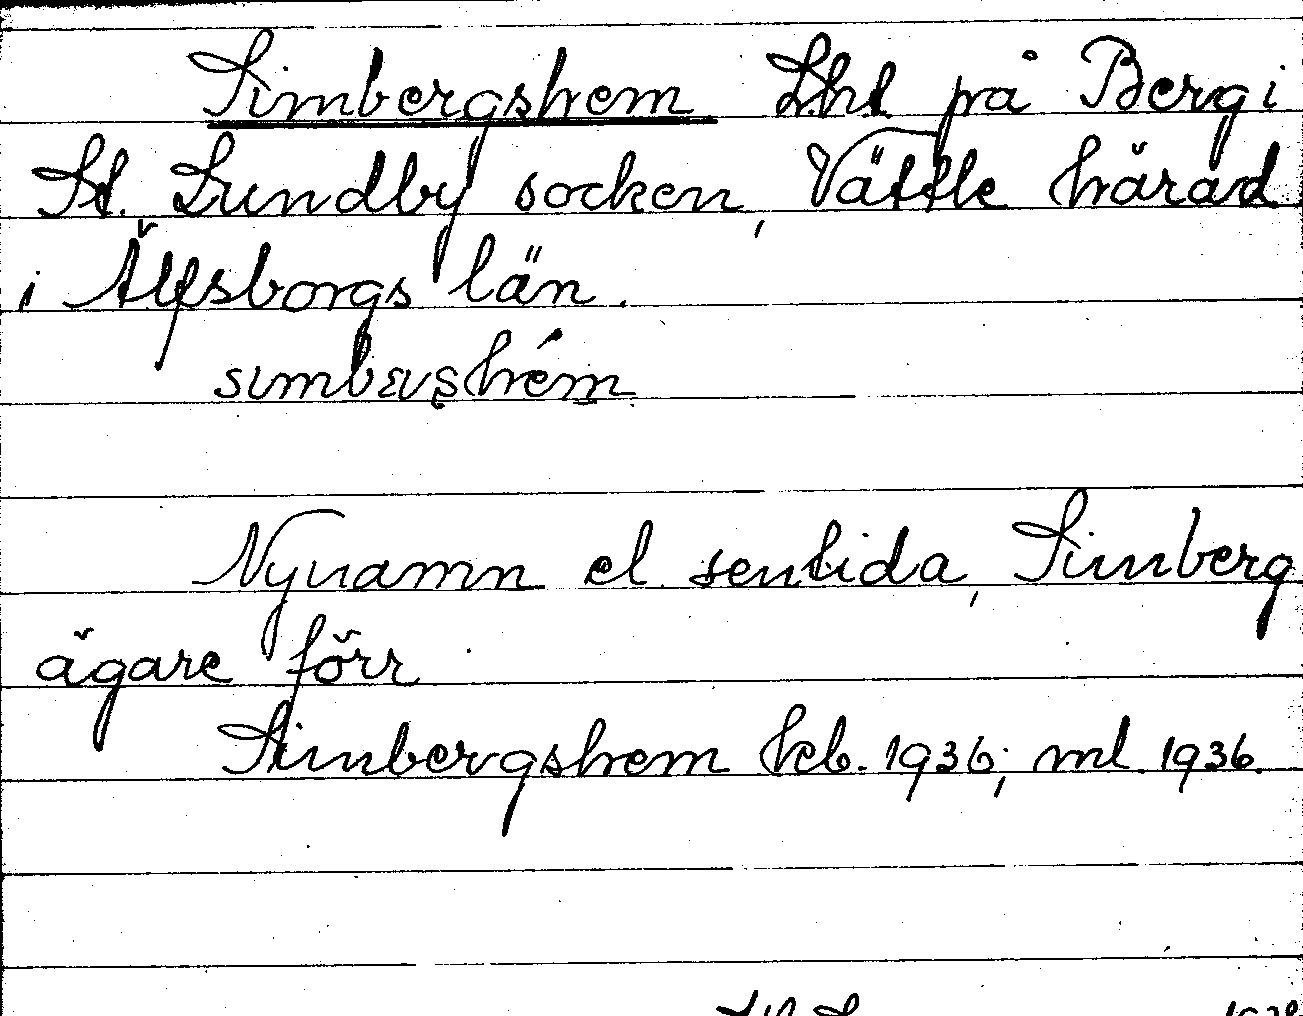 Simbergshem Lht på Berg i
St. Lundby socken, Vättle härad
i Älfsborgs län.
Nynamn el. sentida, Simberg
ägare förr
Simbergshem kb. 1936; ml 1936.